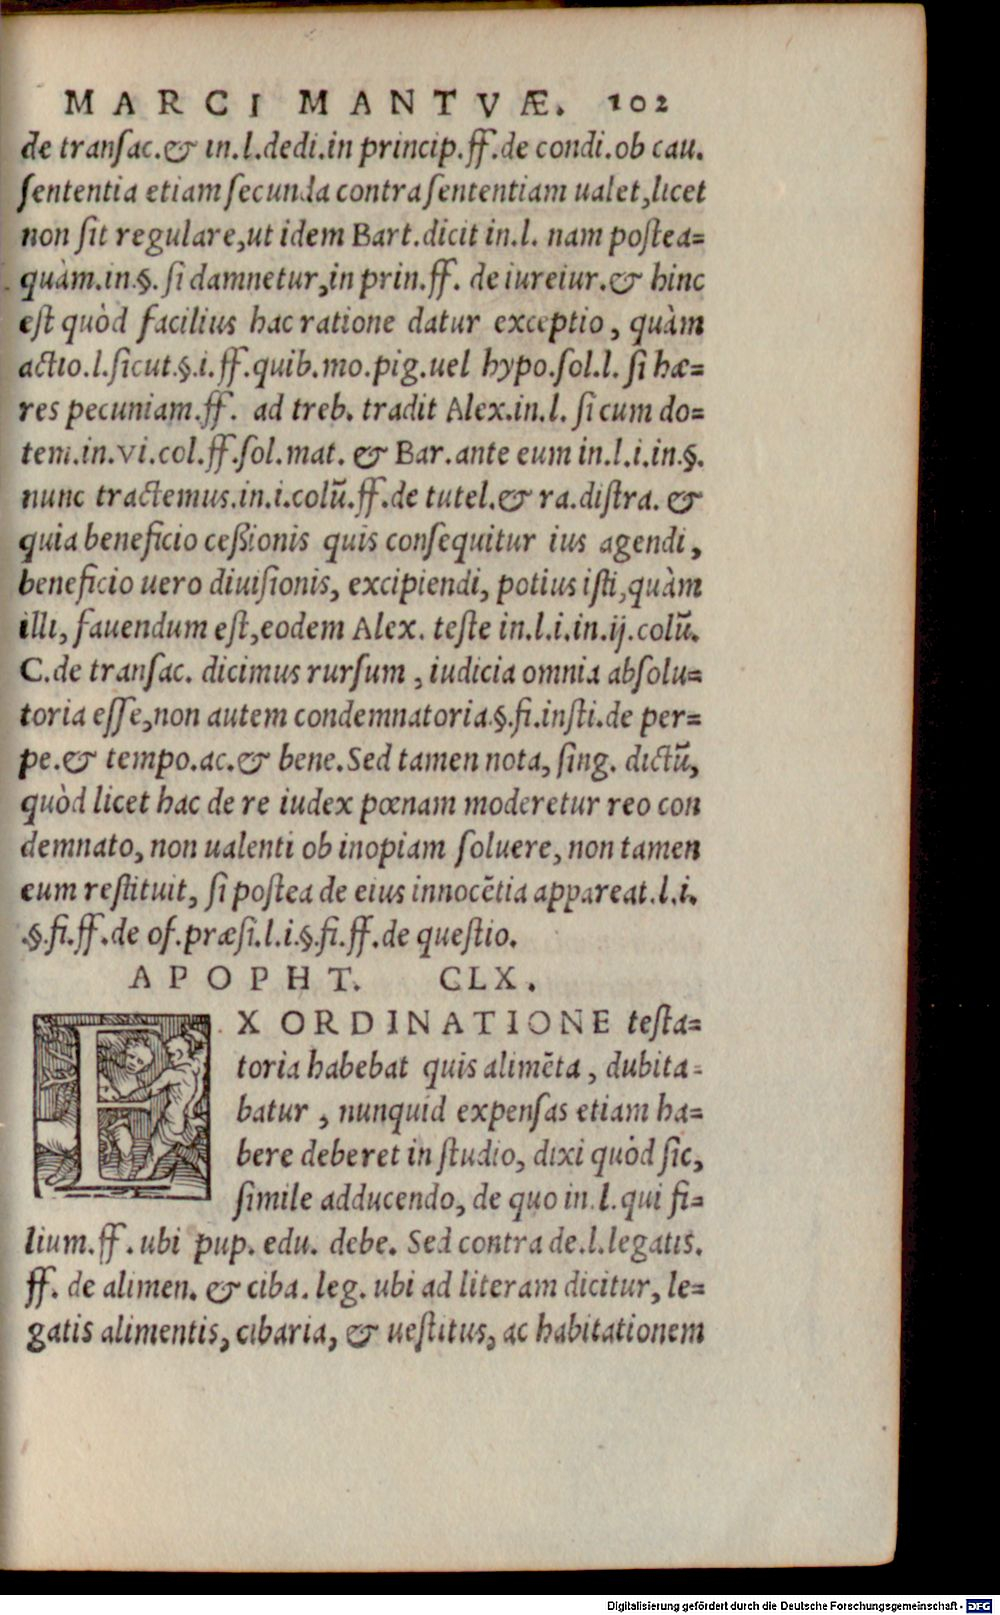 MARCI MANTVÆ. 102
de transac.& in.l.dedi.in princip.ff.de condi.ob cau.
sententia etiam secunda contra sententiam ualet,licet
non sit regulare,ut idem Bart.dicit in.l. nam postea=
quàm.in.§. si damnetur,in prin.ff. de iureiur.& hinc
est quòd facilius hac ratione datur exceptio, quàm
actio.l.sicut.§.i.ff.quib.mo.pig.uel hypo.sol.l. si hæ=
res pecuniam.ff. ad treb. tradit Alex.in.l. si cum do=
tem.in.vi.col.ff.sol.mat. & Bar.ante eum in.l.i.in.§.
nunc tractemus.in.i.colū.ff.de tutel.& ra.distra. &
quia beneficio ceßionis quis consequitur ius agendi,
beneficio uero diuisionis, excipiendi, potius isti,quàm
illi, fauendum est,eodem Alex. teste in.l.i.in.ij.colū.
C.de transac. dicimus rursum, iudicia omnia absolu=
toria esse,non autem condemnatoria.§.fi.insti.de per=
pe.& tempo.ac.& bene.Sed tamen nota, sing. dictū,
quòd licet hac de re iudex pœnam moderetur reo con
demnato, non ualenti ob inopiam soluere, non tamen
eum restituit, si postea de eius innocētia appareat.l.i.
.§.fi.ff.de of.præsi.l.i.§.fi.ff.de questio.
APOPHT. CLX.
EX ORDINATIONE testa=
toria habebat quis alimēta, dubita=
batur, nunquid expensas etiam ha=
bere deberet in studio, dixi quòd sic,
simile adducendo, de quo in.l.qui fi=
lium.ff. ubi pup. edu. debe. Sed contra de.l.legatis.
ff. de alimen. & ciba. leg. ubi ad literam dicitur, le=
gatis alimentis, cibaria, & uestitus, ac habitationem
Digitalisierung gefördert durch die Deutsche Forschungsgemeinschaft - DFG